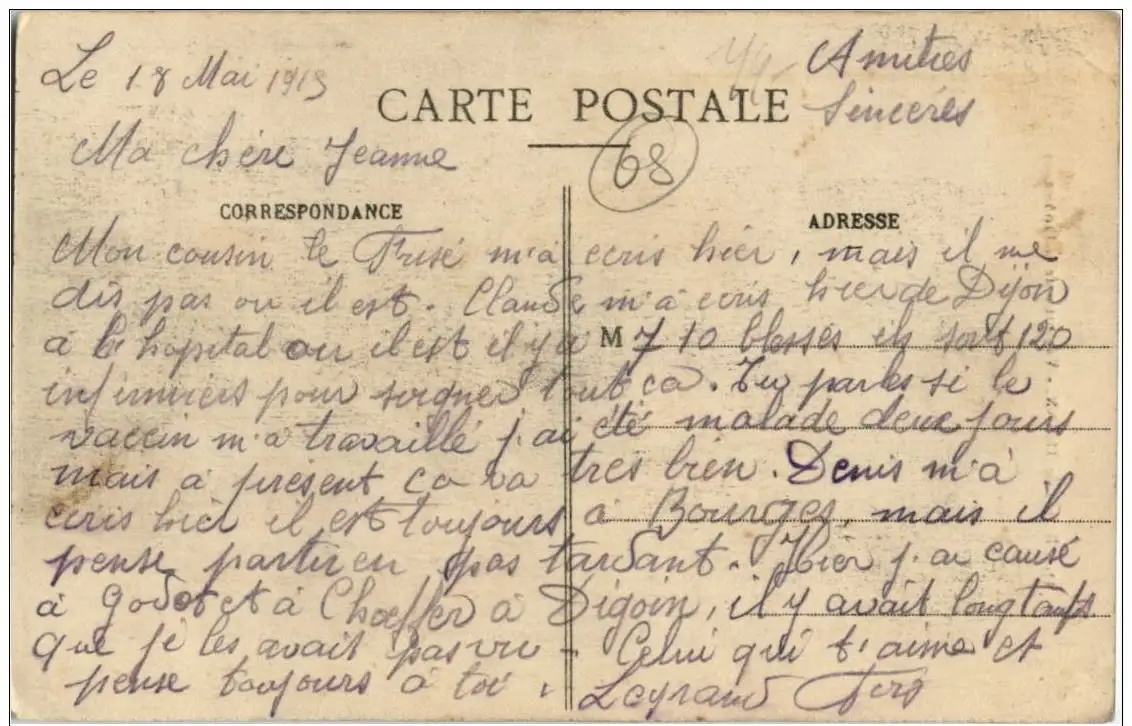 Le 18 Mai 1915
Amities
Sincéres
CARTE POSTALE
68
Ma chère Jeanne
CORRESPONDANCE
ADRESSE
Mon cousin le Frisé m'a ecris hier, mais il me
dis pas ou il est. Claude m'a ecris hier de Dijon
à l'hopital ou il est il y a 710 blessés ils sont 120
M
infirmiers pour soigner tout ca. Tu parles si le
vaccin m'a travaillé j'ai été malade deux jours
mais à présent ca va tres bien. Denis m'à
ecris hier il est toujours à Bourges, mais il
pense partir en pas tardant. Hier j'ai causé
à Godot et à Choeffer à Digoin, il y avait longtemps
que je les avait pas vu - Celui qui t'aime et
pense toujours à toi. Legrand